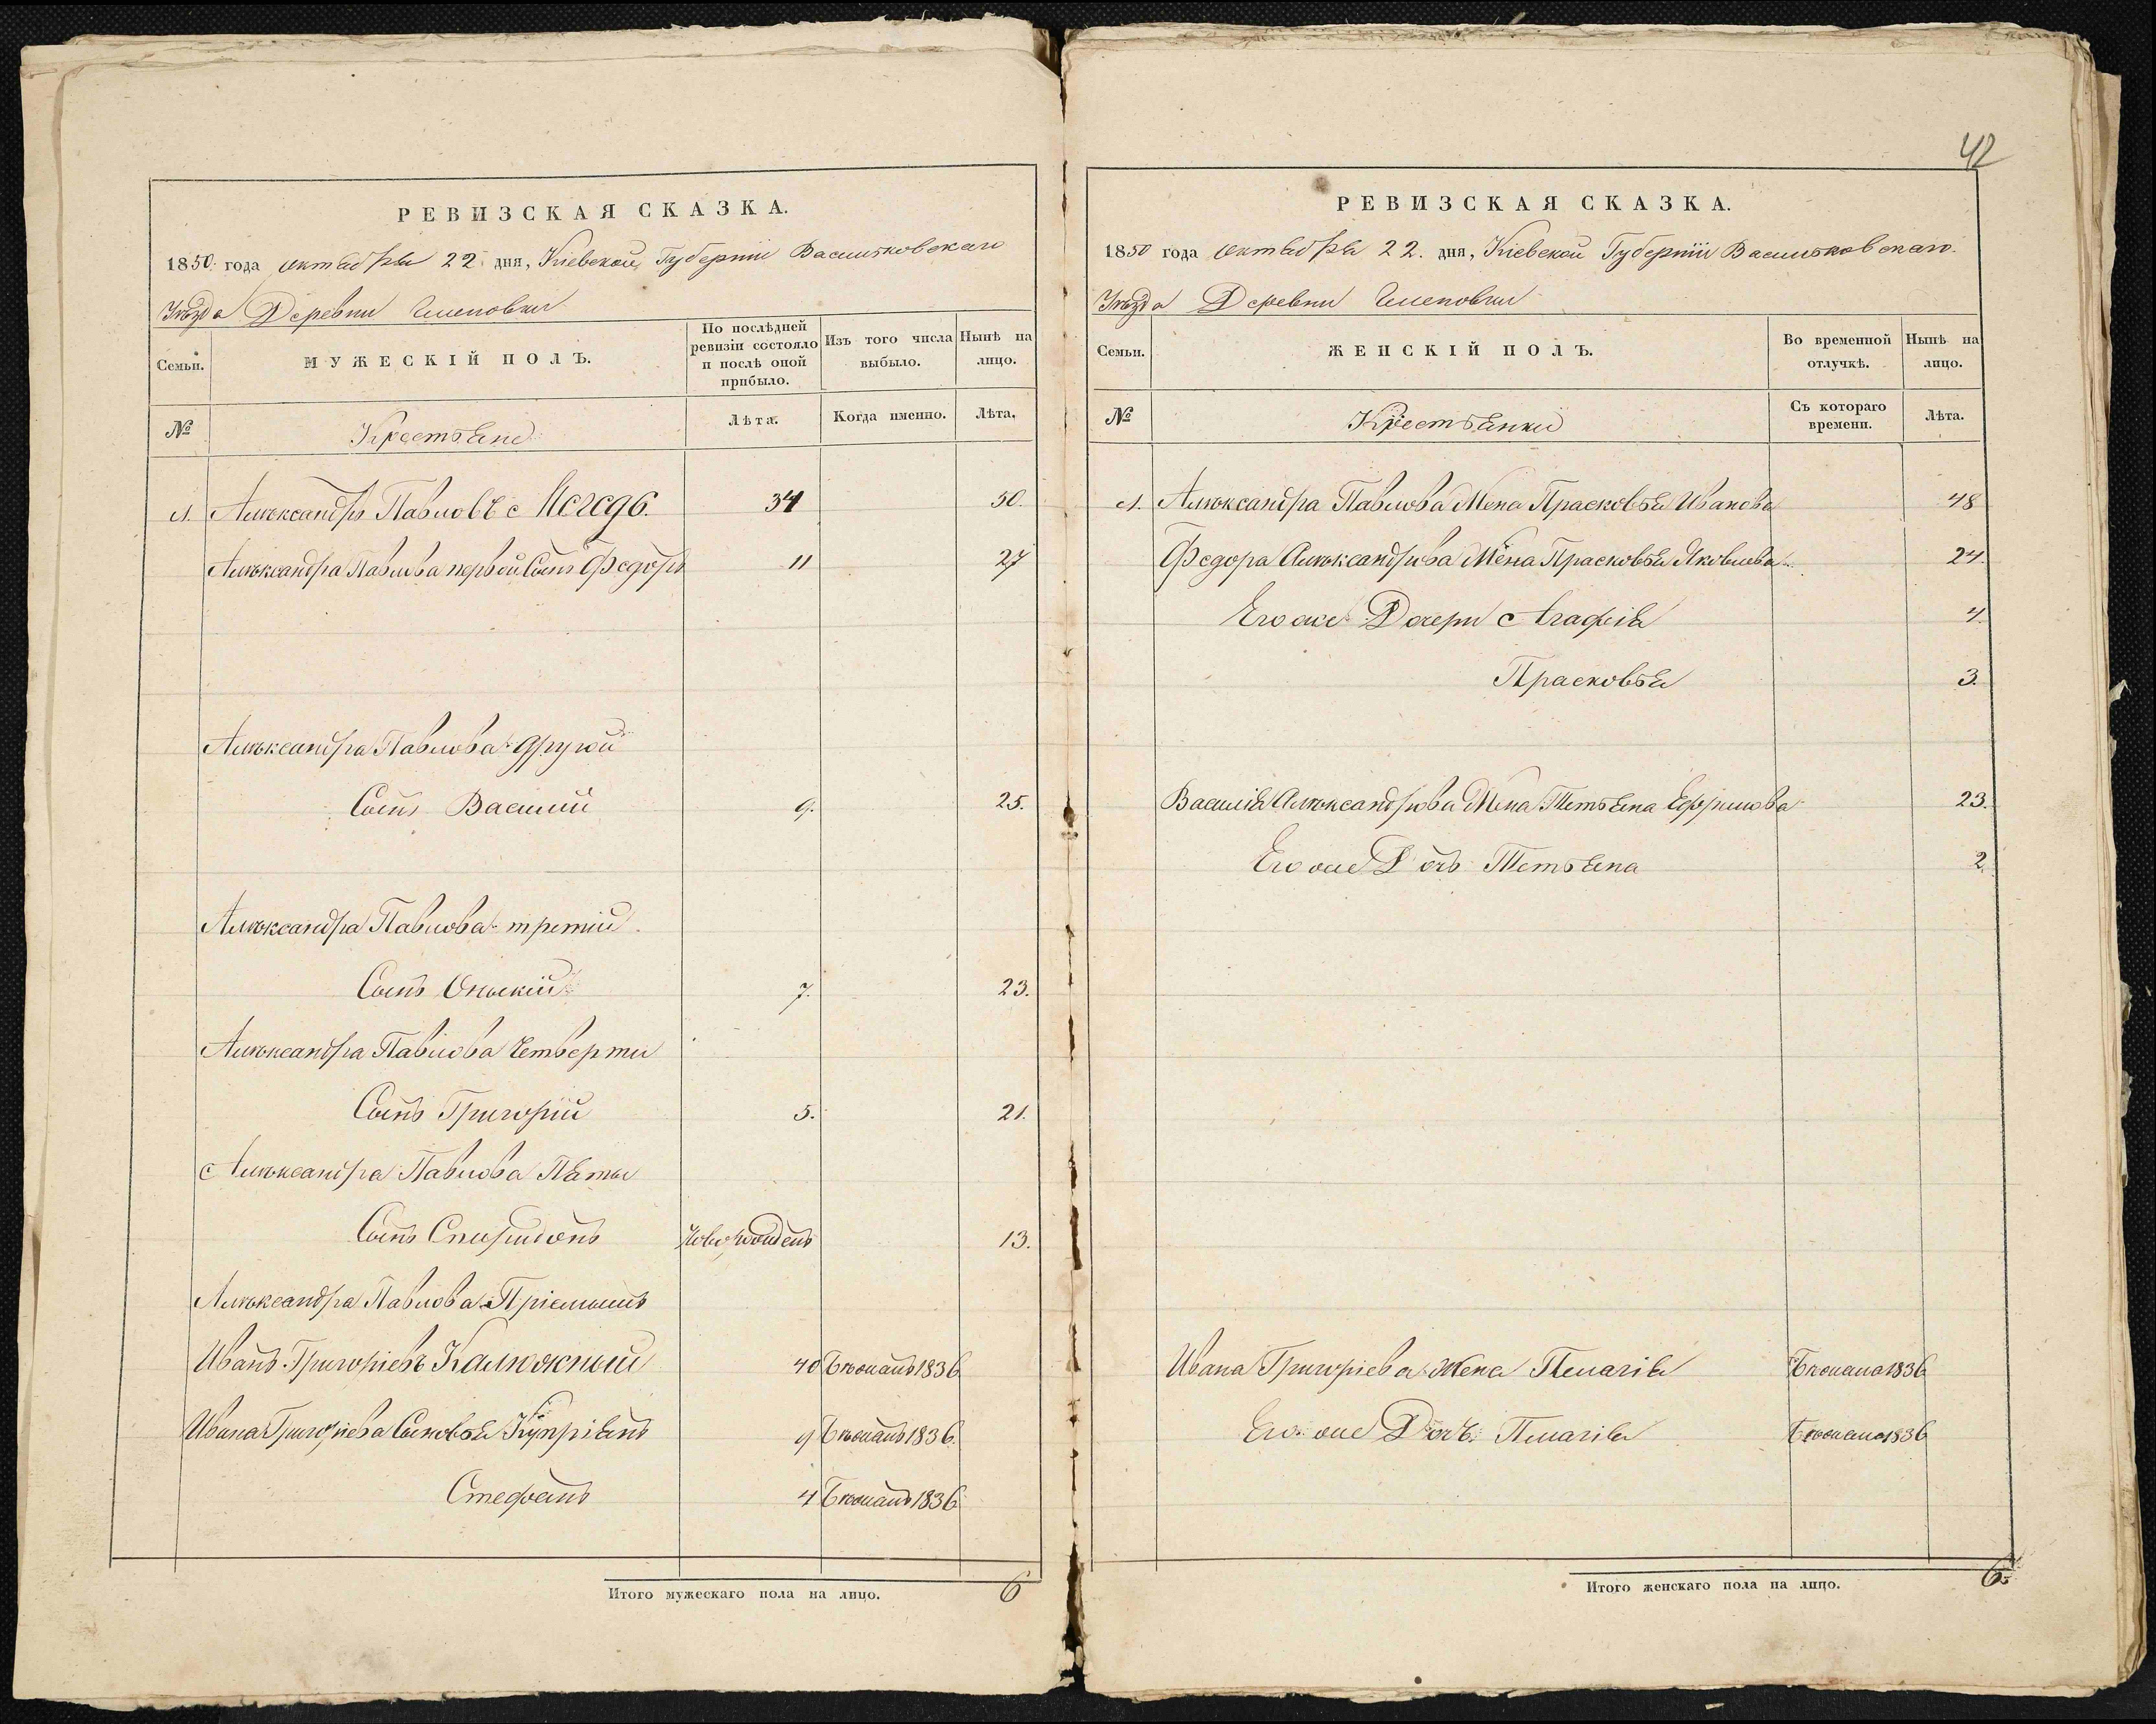 РЕВИЗСКАЯ СКАЗКА.
1850 года октября 22 дня, Кіевской Губерніи Васильковскаго
Уѣзда Деревни
Семьи.
МУЖЕСКІЙ ПОЛЪ.
По послѣдней ревизіи состояло и послѣ оной прибыло.
Изъ того числа выбыло.
Нынѣ на лицо.
№
Крестьяне
Лѣта.
Когда именно.
Лѣта.
1. Алѣксандръ Павловъ 34 50.
Алѣксандра Павлова первой Сынъ Федоръ 11 27
Алѣксандра Павлова другой
Сынъ Василий 9. 25.
Алѣксандра Павлова третий
Сынъ 7. 23.
Алѣксандра Павлова Четверты
Сынъ Григорій 5. 21.
Алѣксандра Павлова Пяты
Сынъ Спиридонъ Новорожденъ 13.
Алѣксандра Павлова Пріемышъ
Иванъ Григоріевъ Калюжный 40 Бѣжалъ 1836
Ивана Григоріева Сыновья Купріянъ 9 Бѣжалъ 1836.
Стефанъ 4 Бѣжалъ 1836
Итого мужескаго пола на лицо. 6
42
РЕВИЗСКАЯ СКАЗКА.
1850 года октября 22. дня, Кіевской Губерніи Васильковскаго.
Уѣзда Деревни
Семьи.
ЖЕНСКІЙ ПОЛЪ.
Во временной отлучкѣ.
Нынѣ на лицо.
№
Крестьянки
Съ котораго времени.
Лѣта.
1. Алѣксандра Павлова Жена Прасковья Иванова 48
Федора Алѣксандрова Жена Прасковья Яковлева 24.
Его же Дочери Агафія 4.
Прасковья 3.
Василія Алѣксандрова Жена Тетьяна Ефримова 23.
Его же Дочь Тетьяна 2.
Ивана Григоріева Жена Пелагія Бѣжала 1836
Его же Дочь Пелагія Бѣжала 1836
Итого женскаго пола на лицо. 6